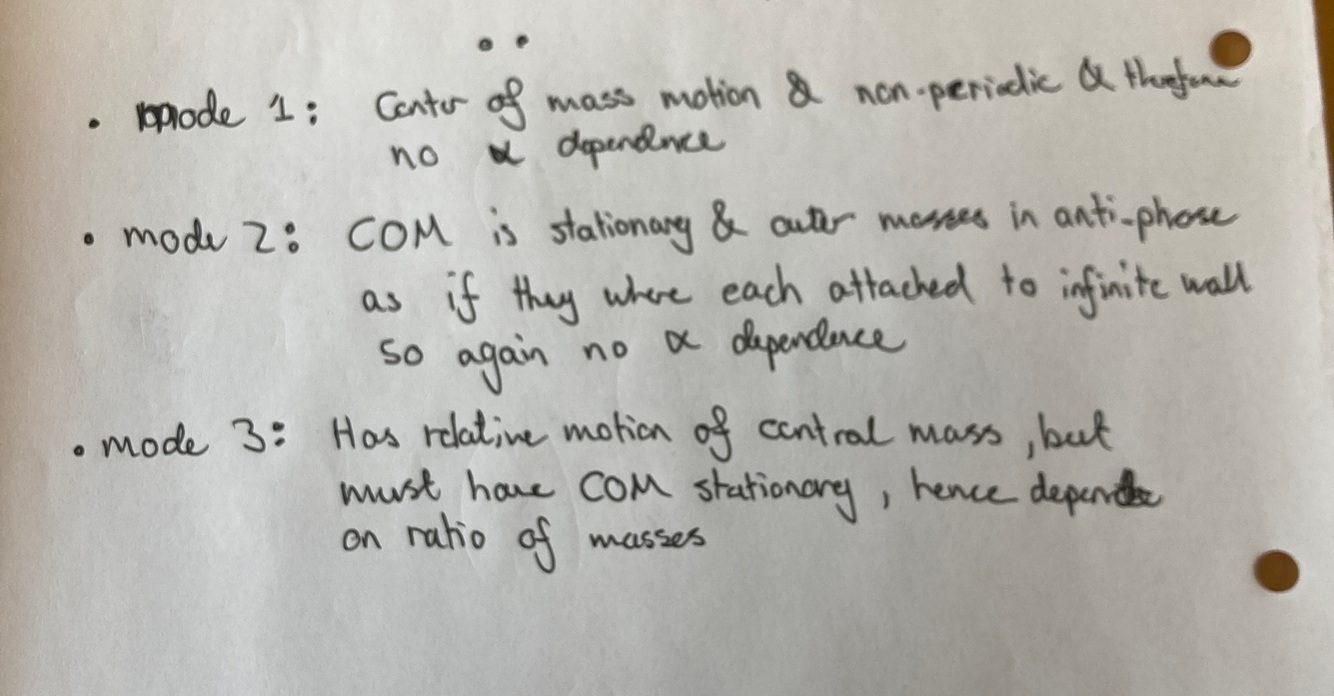 • mode 1: Center of mass motion & non-periodic & therefore
no α dependence
• mode 2: COM is stationary & outer masses in anti-phase
as if they where each attached to infinite wall
so again no α dependence
• mode 3: Has relative motion of central mass, but
must have COM stationary, hence depends
on ratio of masses